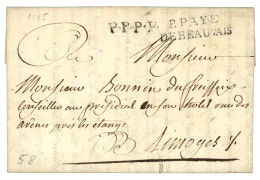 1785
P.P.P.P. P.PAYÉ
DE BEAUVAIS
Monsieur
Monsieur Bonnin du freisseix
Conseiller au présidial en son hotel rue des
arênes près les étangs
58 Limoges /.